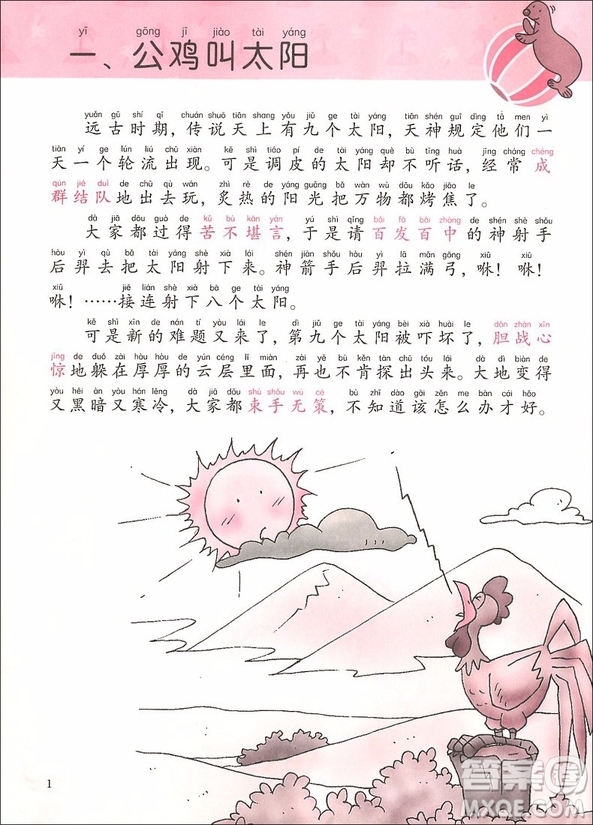 yī gōng jī jiào tài yáng
一、公鸡叫太阳
yuǎn gǔ shí qī chuán shuō tiān shang yǒu jiǔ ge tài yáng tiān shén guī dìng tā men yì
远古时期，传说天上有九个太阳，天神规定他们一
tiān yí ge lún liú chū xiàn kě shì tiáo pí de tài yáng què bù tīng huà jīng cháng chéng
天一个轮流出现。可是调皮的太阳却不听话，经常成
qún jié duì de chū qù wán zhì rè de yáng guāng bǎ wàn wù dōu kǎo jiāo le
群结队地出去玩，炙热的阳光把万物都烤焦了。
dà jiā dōu guò de kǔ bù kān yán yú shì qǐng bǎi fā bǎi zhòng de shén shè shǒu
大家都过得苦不堪言，于是请百发百中的神射手
hòu yì qù bǎ tài yáng shè xià lái shén jiàn shǒu hòu yì lā mǎn gōng xiū xiū
后羿去把太阳射下来。神箭手后羿拉满弓，咻！咻！
xiū jiē lián shè xià bā ge tài yáng
咻！……接连射下八个太阳。
kě shì xīn de nán tí yòu lái le dì jiǔ ge tài yáng bèi xià huài le dǎn zhàn xīn
可是新的难题又来了，第九个太阳被吓坏了，胆战心
jīng de duǒ zài hòu hòu de yún céng lǐ miàn zài yě bù kěn tàn chū tóu lái dà dì biàn de
惊地躲在厚厚的云层里面，再也不肯探出头来。大地变得
yòu hēi àn yòu hán lěng dà jiā dōu shù shǒu wú cè bù zhī dào gāi zěn me bàn cái hǎo
又黑暗又寒冷，大家都束手无策，不知道该怎么办才好。
1
答案
MXQE.COM